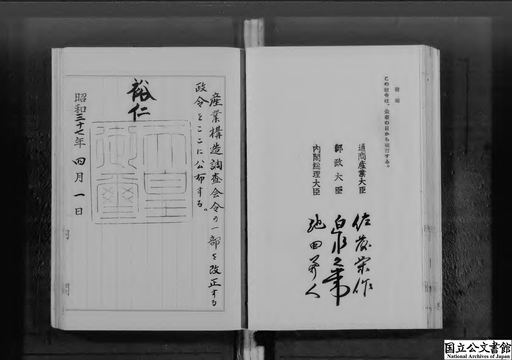 附則
この政令は、公布の日から施行する。
通商産業大臣 佐藤栄作
郵政大臣 迫水久常
内閣総理大臣 池田勇人
産業構造調査会令の一部を改正する
政令をここに公布する。
裕仁
天皇御璽
昭和三十七年 四月一日
国立公文書館
National Archives of Japan